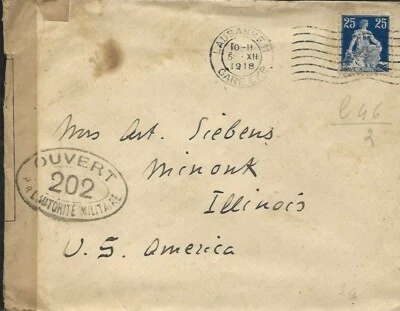 LAUSANNE
10-11
6 XII
1918
GARE EXP.
25 25
Mrs Art. Siebens
Minonk
Illinois
U. S. America
OUVERT
202
PAR L'AUTORITÉ MILITAIRE
2